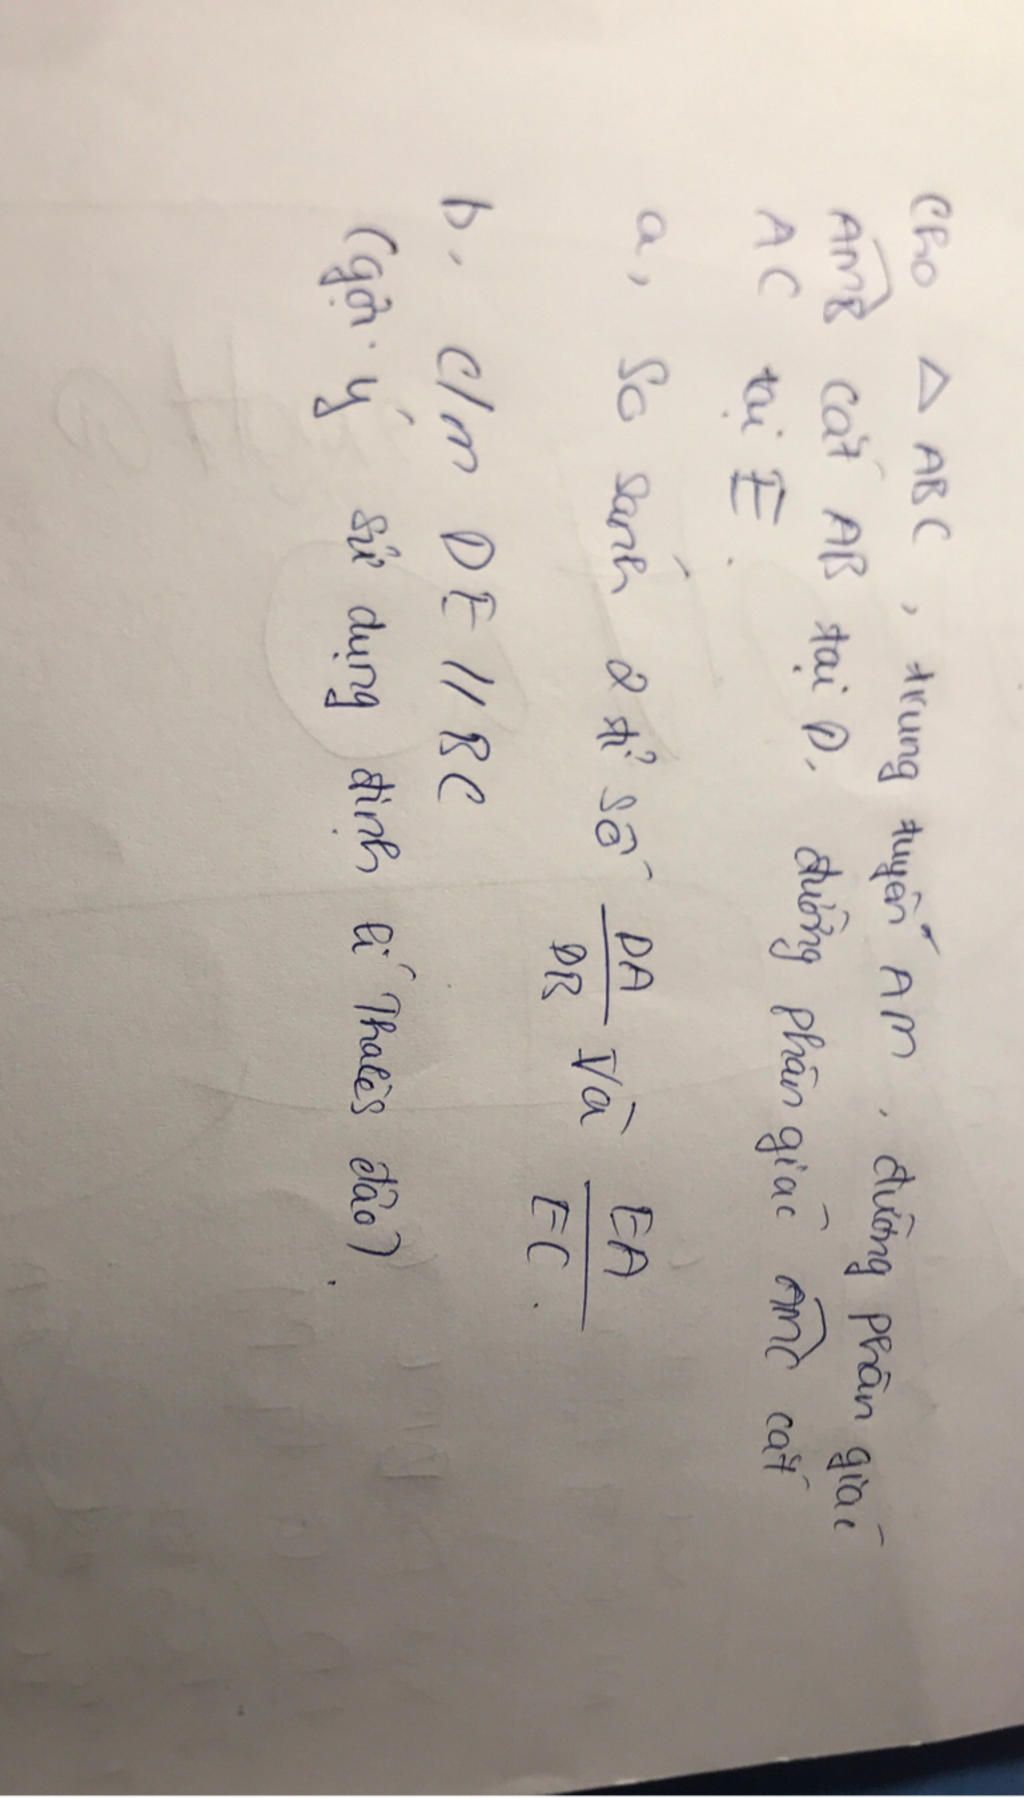 Cho △ ABC, trung tuyến AM. đường phân giác
AMB cắt AB tại D. đường phân giác AMC cắt
AC tại E.
a, So sánh 2 tỉ số DA/DB và EA/EC.
b, C/m DE // BC
(gợi ý sử dụng định lí Thalès đảo).